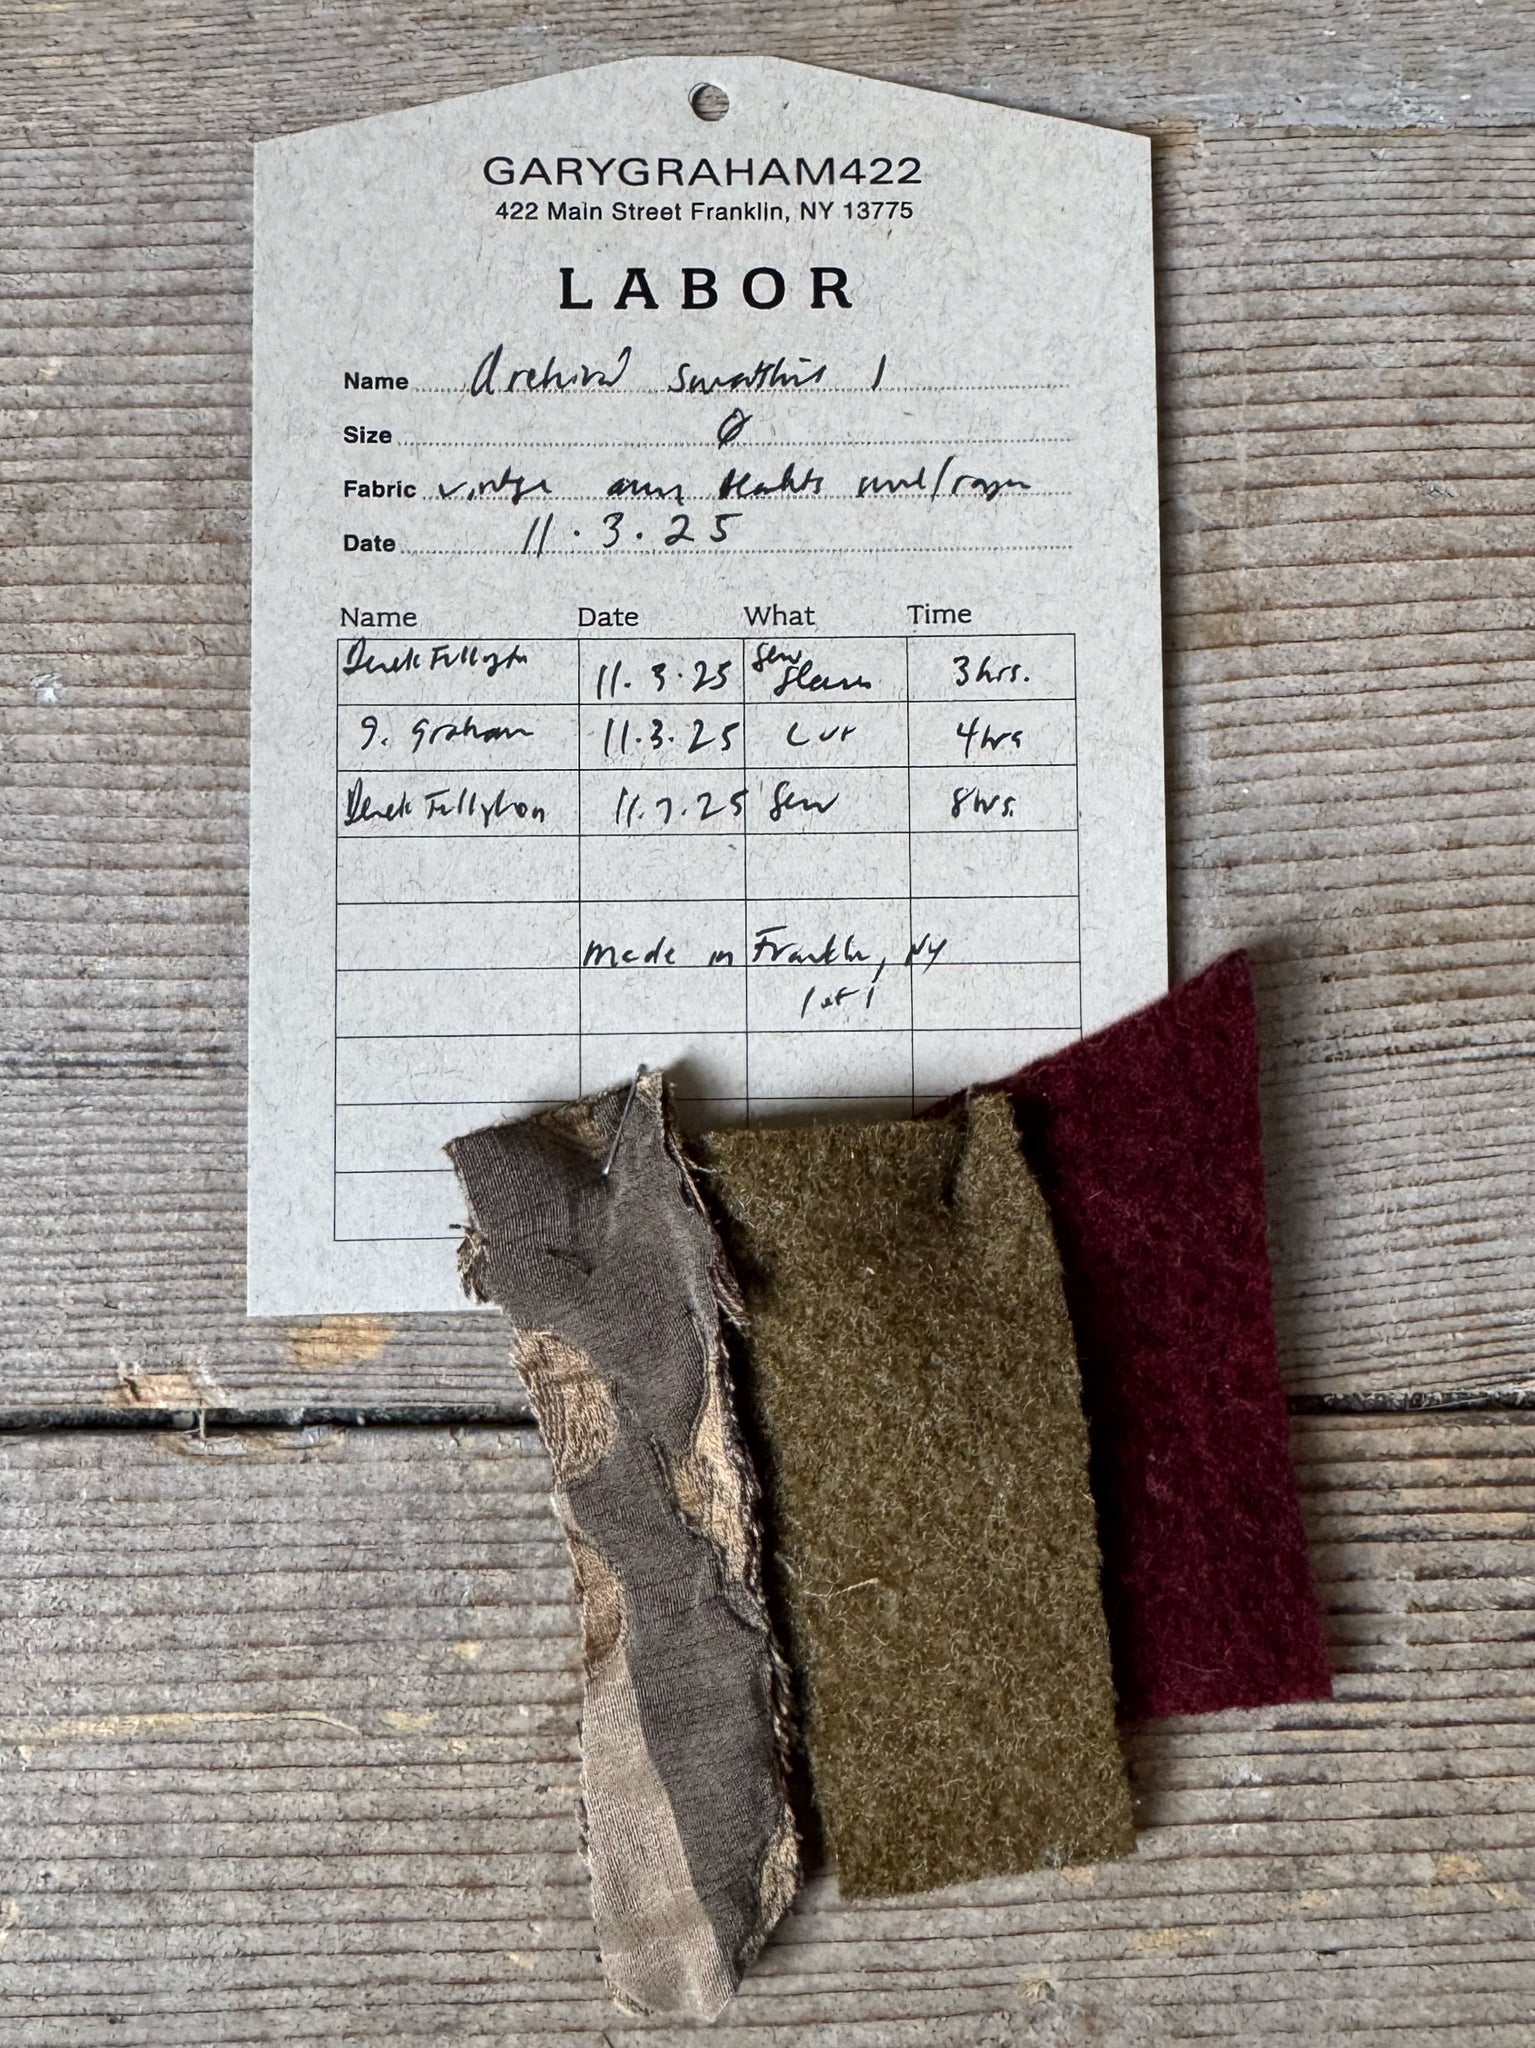 GARYGRAHAM422
422 Main Street Franklin, NY 13775
LABOR
Name Archival Sweatshirt 1
Size 0
Fabric vintage army blankets wool/rayon
Date 11.3.25
Name Date What Time
Derek 11.3.25 Sew Sleeves 3hrs.
G. Graham 11.3.25 Cut 4hrs
Derek 11.7.25 Sew 8hrs.
Made in Franklin, NY
1 of 1